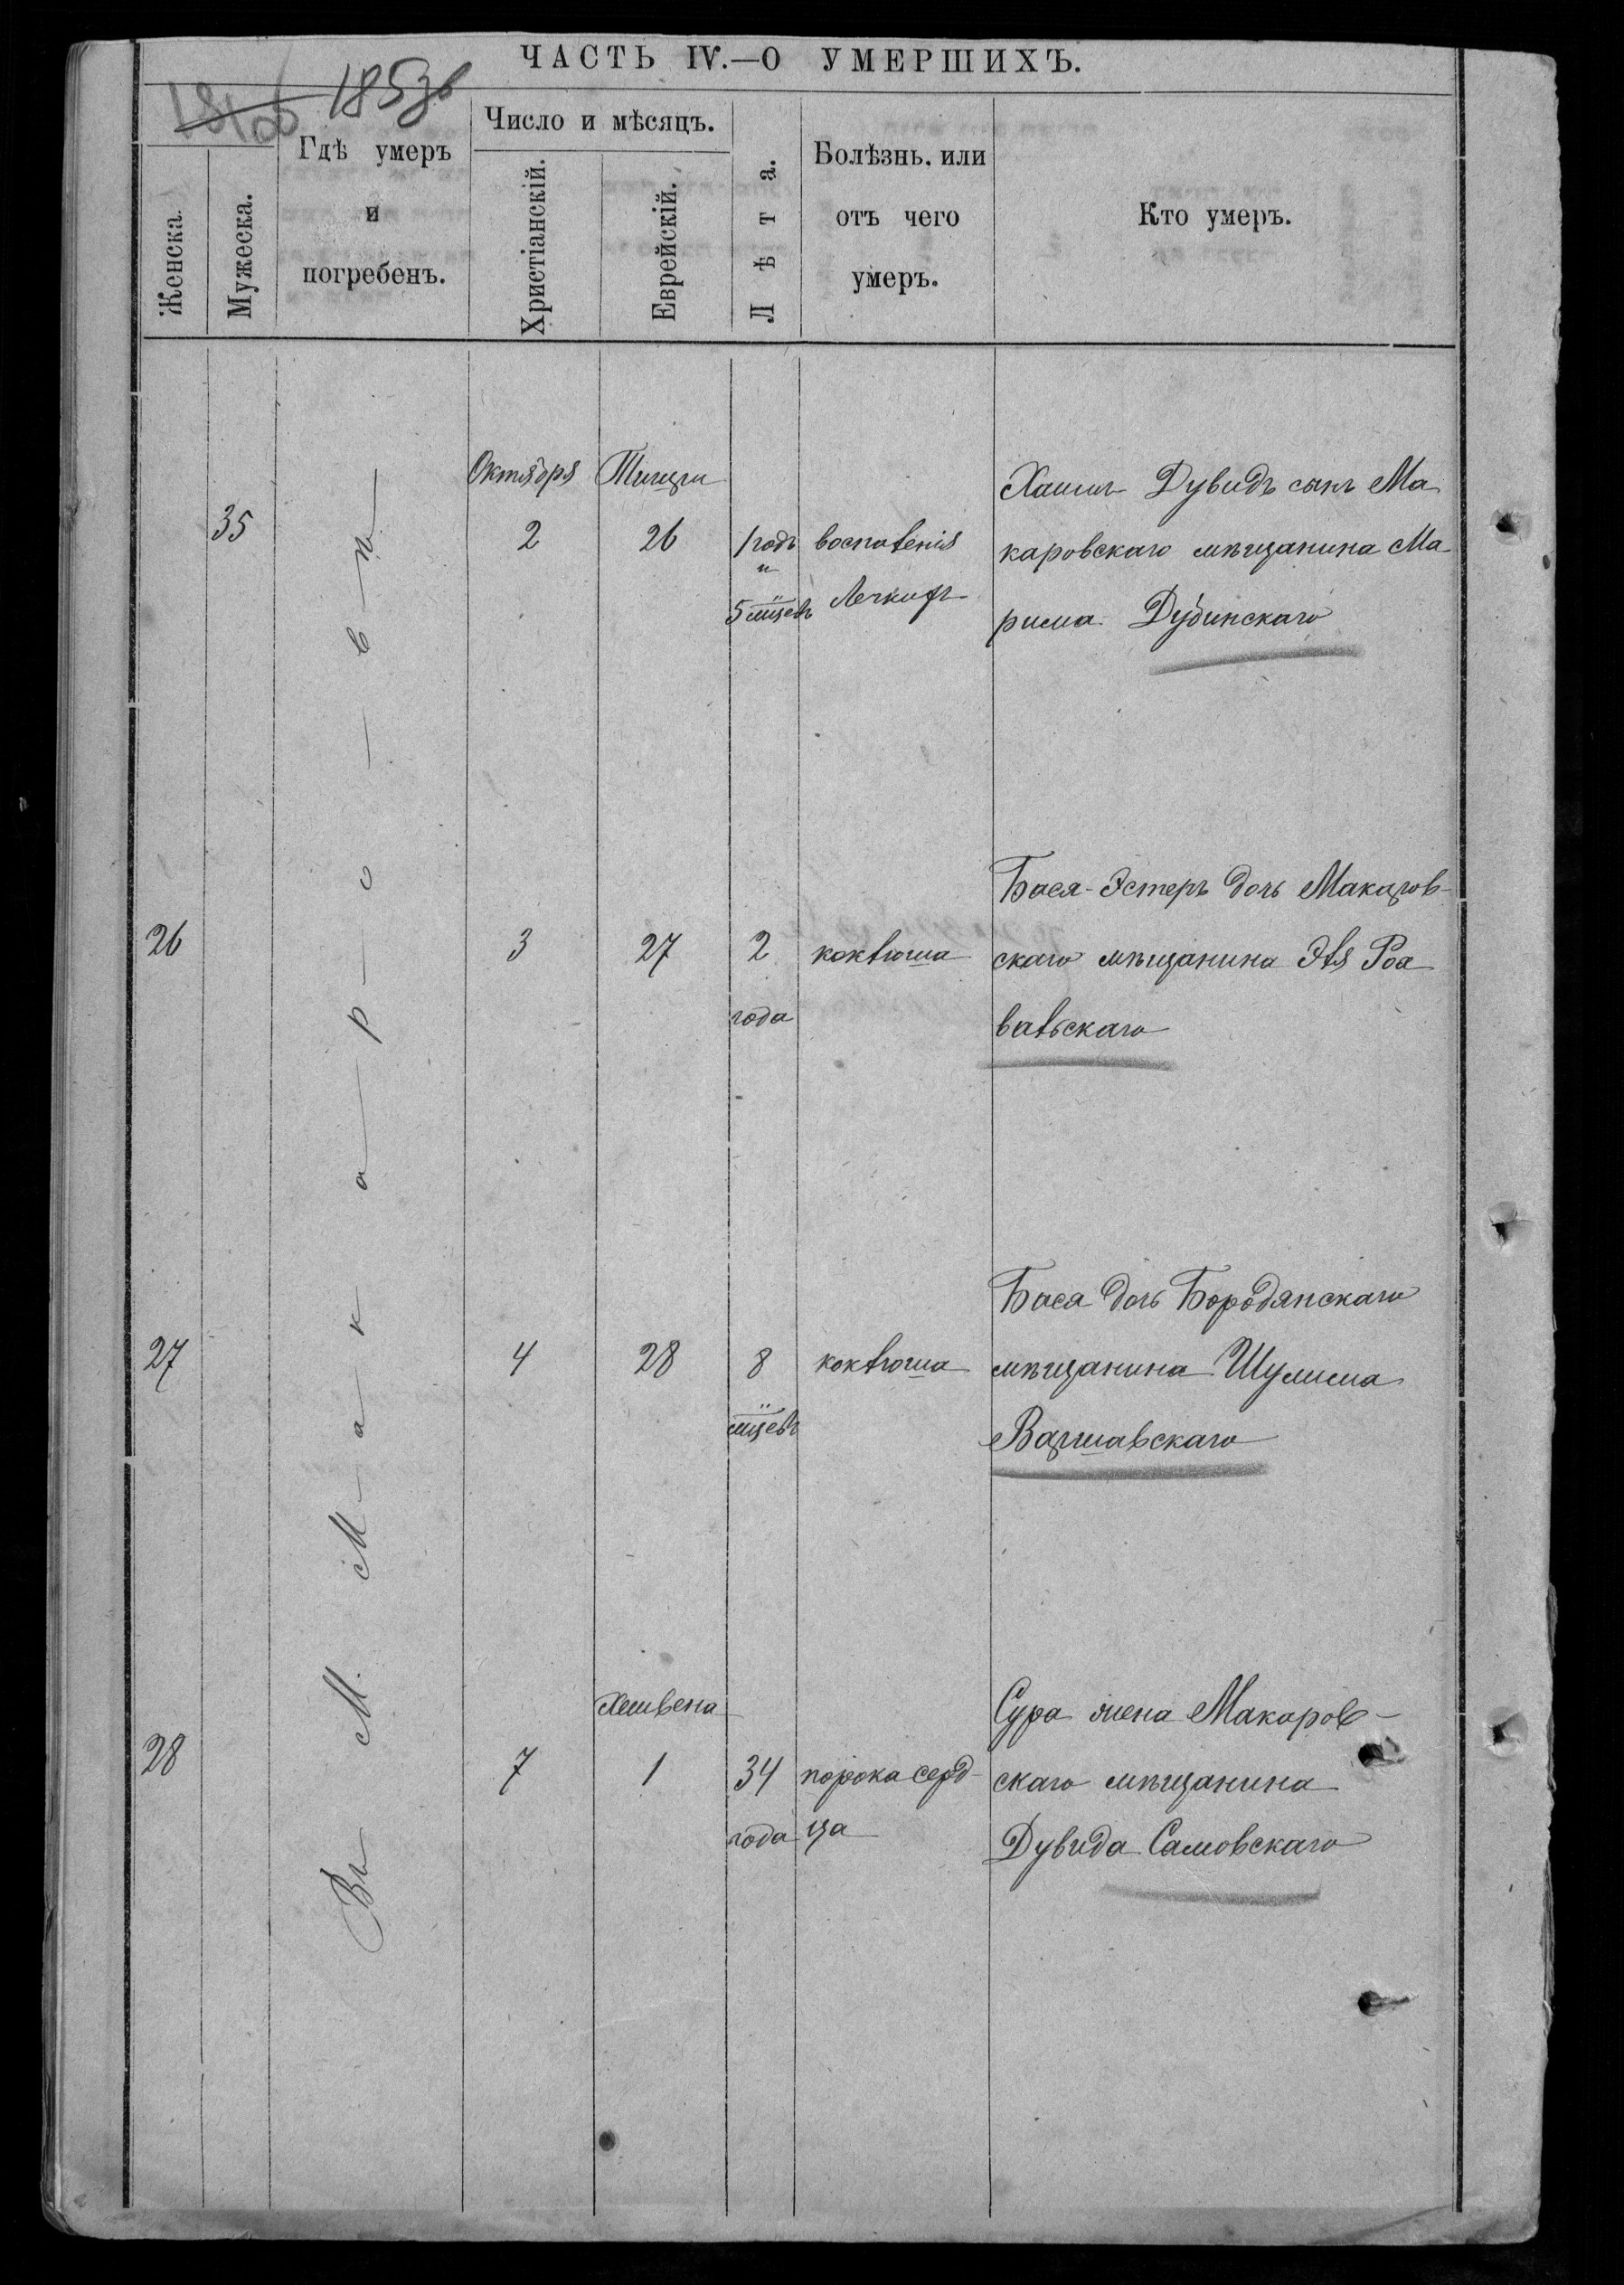 ЧАСТЬ IV.—О УМЕРШИХЪ.
Женска.
Мужеска.
Гдѣ умеръ
и
погребенъ.
Число и мѣсяцъ.
Христіанскій.
Еврейскій.
Лѣта.
Болѣзнь. или
отъ чего
умеръ.
Кто умеръ.
Въ М. Макаровѣ
35
Октября
2
Тишри
26
1 годъ
и
5 мцевъ
воспаленія
Легкихъ
Дувидъ сынъ Ма
каровскаго мѣщанина Ма
рима Дубинскаго
26
3
27
2
года
коклюша
Бася-Эстеръ дочь Макаров-
скаго мѣщанина Эля Роа
вальскаго
27
4
28
8
мцевъ
коклюша
Бася дочь Бородянскаго
мѣщанина Шулима
Варшавскаго
28
7
Хешвена
1
34
года
порока серд-
ца
Сура жена Макаров-
скаго мѣщанина
Дувида Самовскаго